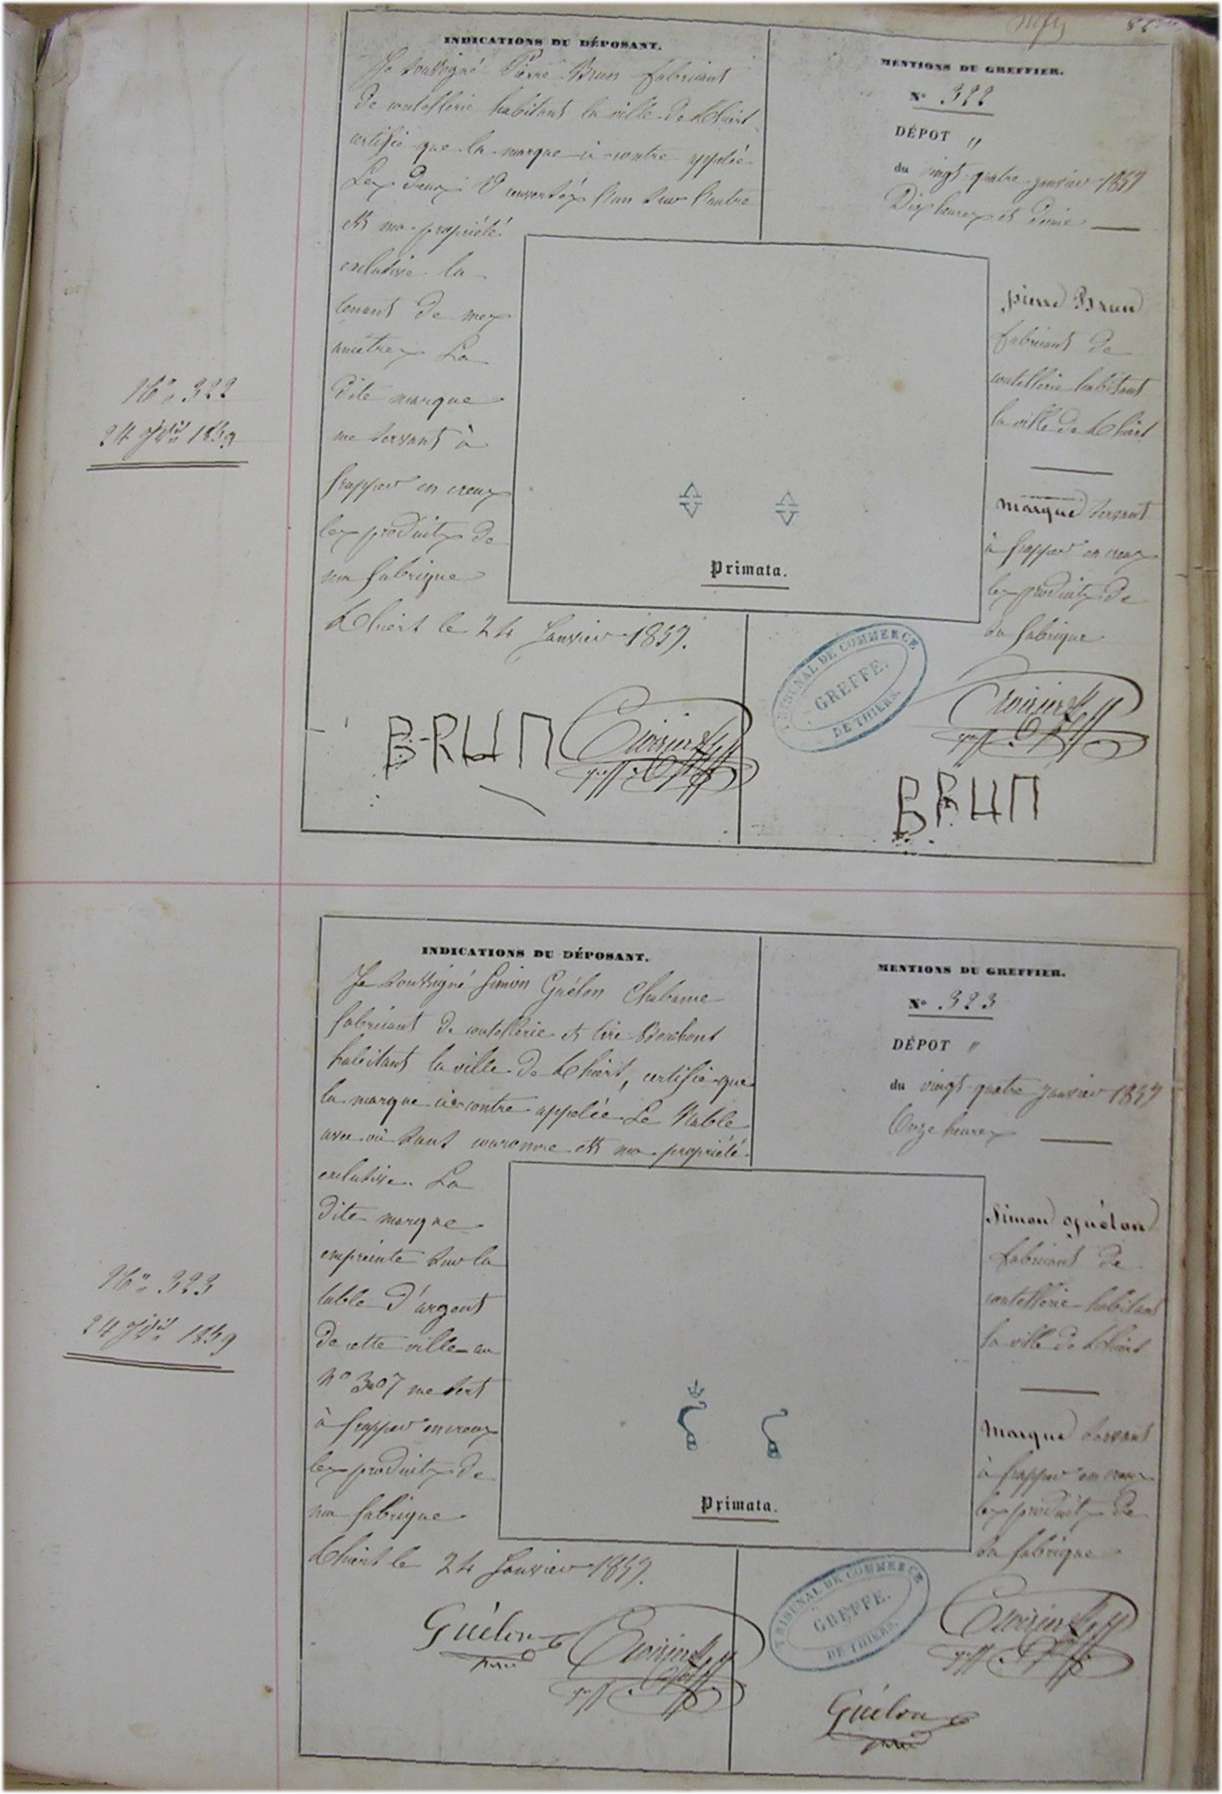 INDICATIONS DU DÉPOSANT.
Je soussigné Pierre Brun fabricant
de coutellerie habitant la ville de Thiers
certifie que la marque ci contre appelée
Les Deux V renversés l'un sur l'autre
est ma propriété
exclusive la
tenant de mes
ancêtres La
dite marque
me servant à
frapper en creux
les produits de
ma fabrique
Thiers le 24 Janvier 1859.
BRUN
MENTIONS DU GREFFIER.
N° 322
DÉPOT "
du vingt quatre janvier 1859
Dix heures et demie
pierre Brun
fabricant de
coutellerie habitant
la ville de Thiers
marque servant
à frapper en creux
les produits de
sa fabrique
Primata.
TRIBUNAL DE COMMERCE
GREFFE.
DE THIERS.
BRUN
N° 322
24 Jer 1859
INDICATIONS DU DÉPOSANT.
Je soussigné Simon Guélon Chabanne
fabricant de coutellerie et tire Bouchons
habitant la ville de Thiers, certifie que
la marque ci contre appelée Le Sable
avec ou sans couronne est ma propriété
exclusive. La
dite marque
empreinte sur la
table d'argent
de cette ville au
N° 307 me sert
à frapper en creux
les produits de
ma fabrique
Thiers le 24 Janvier 1859.
Guélon
MENTIONS DU GREFFIER.
N° 323
DÉPOT "
du vingt quatre janvier 1859
Onze heures
Simon Guélon
fabricant de
coutellerie habitant
la ville de Thiers
Marque servant
à frapper en creux
les produits de
sa fabrique
Primata.
TRIBUNAL DE COMMERCE
GREFFE.
DE THIERS.
Guélon
N° 323
24 Jer 1859